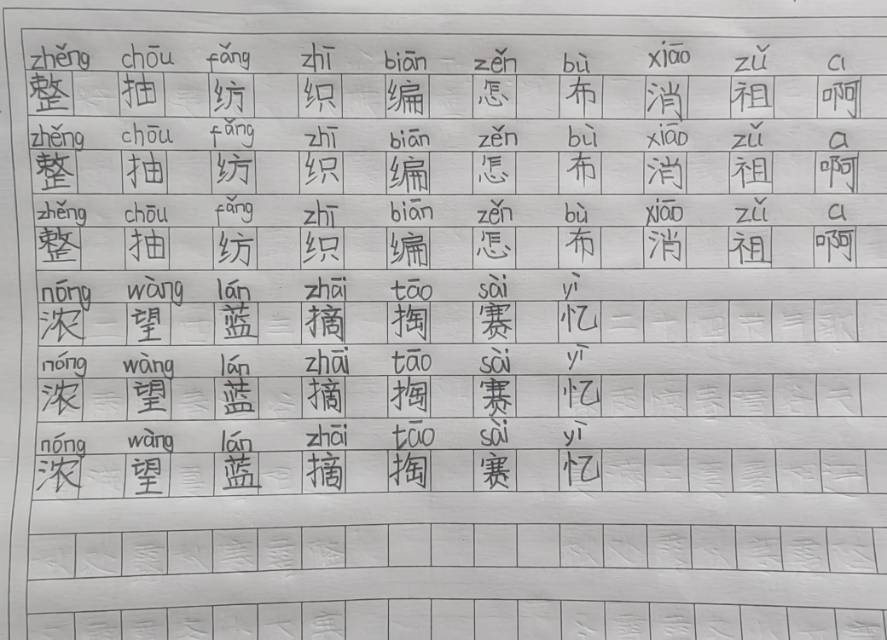 zhěng chōu fǎng zhī biān zěn bù xiāo zǔ a
整 抽 纺 织 编 怎 布 消 祖 啊
zhěng chōu fǎng zhī biān zěn bù xiāo zǔ a
整 抽 纺 织 编 怎 布 消 祖 啊
zhěng chōu fǎng zhī biān zěn bù xiāo zǔ a
整 抽 纺 织 编 怎 布 消 祖 啊
nóng wàng lán zhāi tāo sài yì
浓 望 蓝 摘 掏 赛 忆
nóng wàng lán zhāi tāo sài yì
浓 望 蓝 摘 掏 赛 忆
nóng wàng lán zhāi tāo sài yì
浓 望 蓝 摘 掏 赛 忆